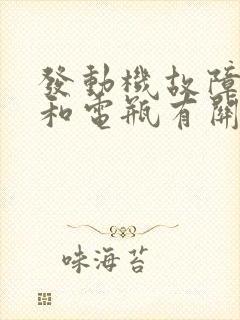 發動機故障
和電瓶有關
味海苔